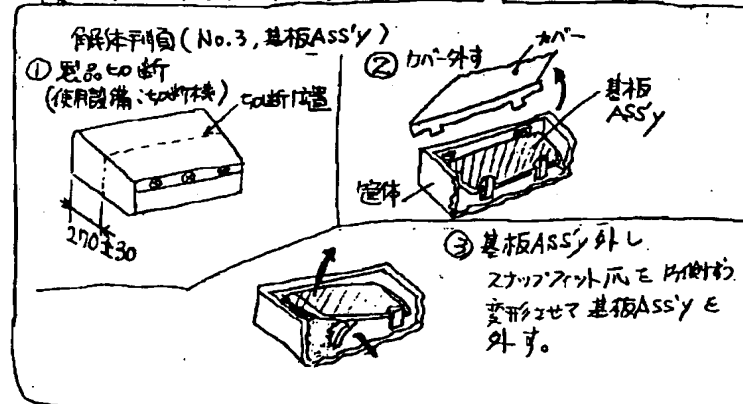 解体手順(No.3,基板ASS'y)
① 製品切断
(使用設備:切断機)
切断位置
270±30
② カバー外す
カバー
基板
ASS'y
筐体
③ 基板ASS'y外し
スナップフィット爪を片側ずつ
変形させて基板ASS'yを
外す。